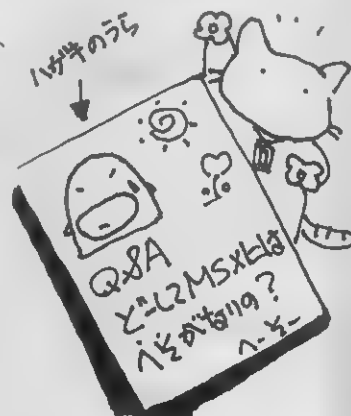 ハガキのうら
Q&A
どーしてMSXには
へそがないの？
へそー